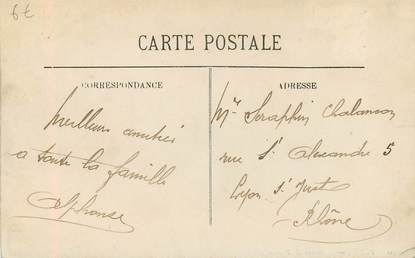 6€
CARTE POSTALE
CORRESPONDANCE
ADRESSE
Meilleure amitiés
a toute la famille
Alphonse
Mr Seraphin Chalanson
rue St Alexandre 5
Lyon St Just
Rhône